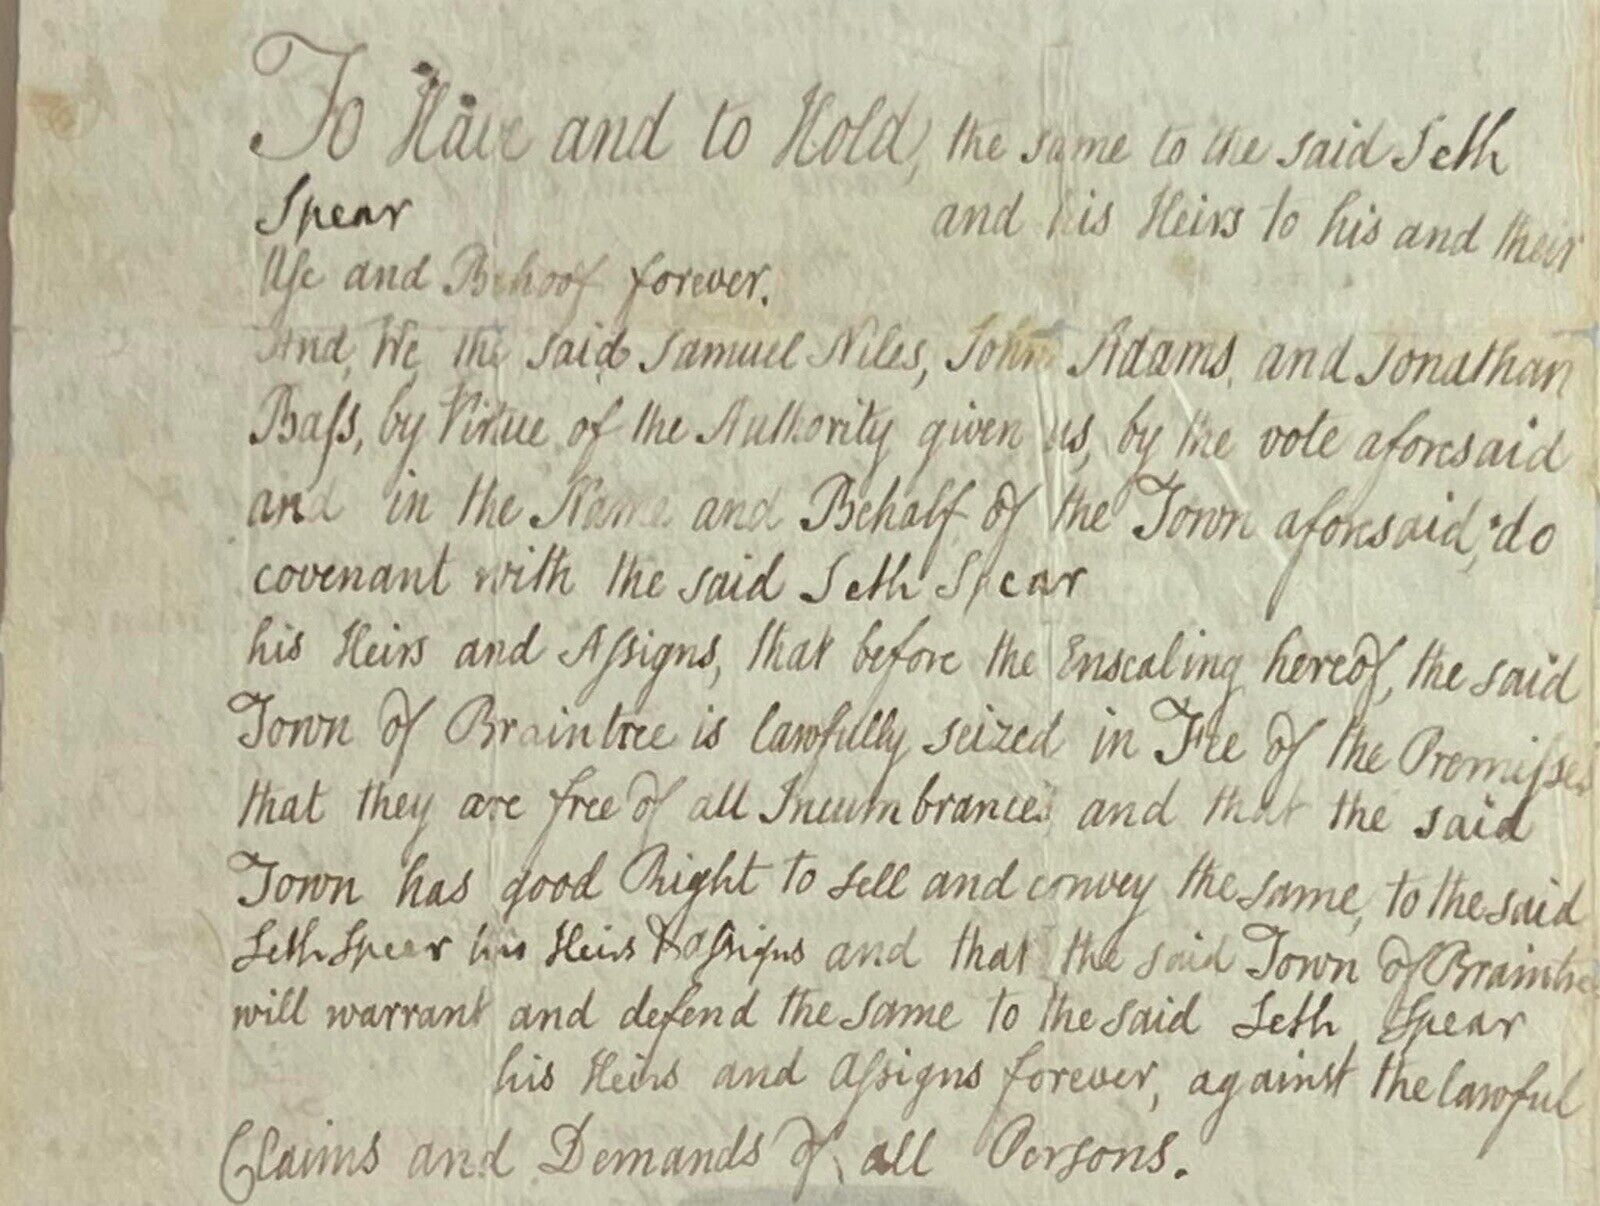 To Have and to Hold, the same to the said Seth
Spear and his Heirs to his and their
Use and Behoof forever.
And, We the said Samuel Niles, John Adams, and Jonathan
Baſs, by Virtue of the Authority given us, by the vote aforesaid
and in the Name and Behalf of the Town aforesaid, do
covenant with the said Seth Spear
his Heirs and Aſsigns, that before the Ensealing hereof, the said
Town of Braintree is lawfully seized in Fee of the Premiſses
that they are free of all Incumbrances and that the said
Town has good Right to sell and convey the same, to the said
Seth Spear his Heirs & aſsigns and that the said Town of Braintree
will warrant and defend the same to the said Seth Spear
his Heirs and Aſsigns forever, against the lawful
Claims and Demands of all Persons.